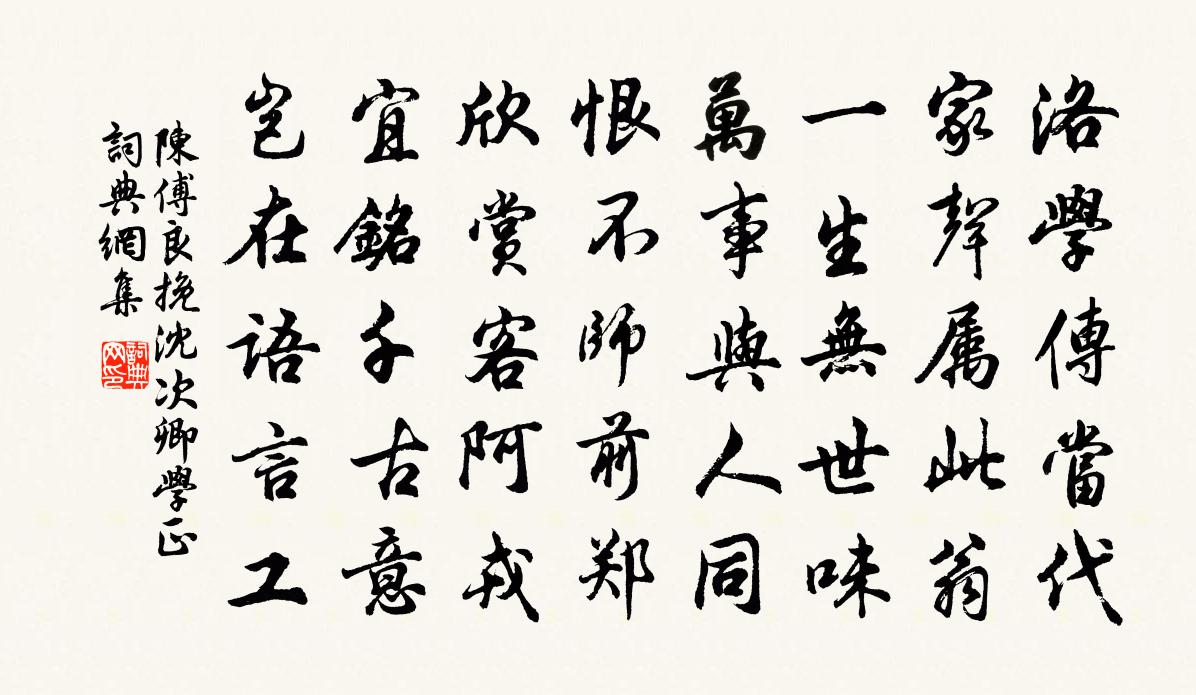 洛學傳當代
家聲屬此翁
一生無世味
萬事與人同
恨不師前郑
欣賞客阿戎
宜銘千古意
豈在語言工
陳傅良挽沈次卿學正
詞典網集
詞典网印